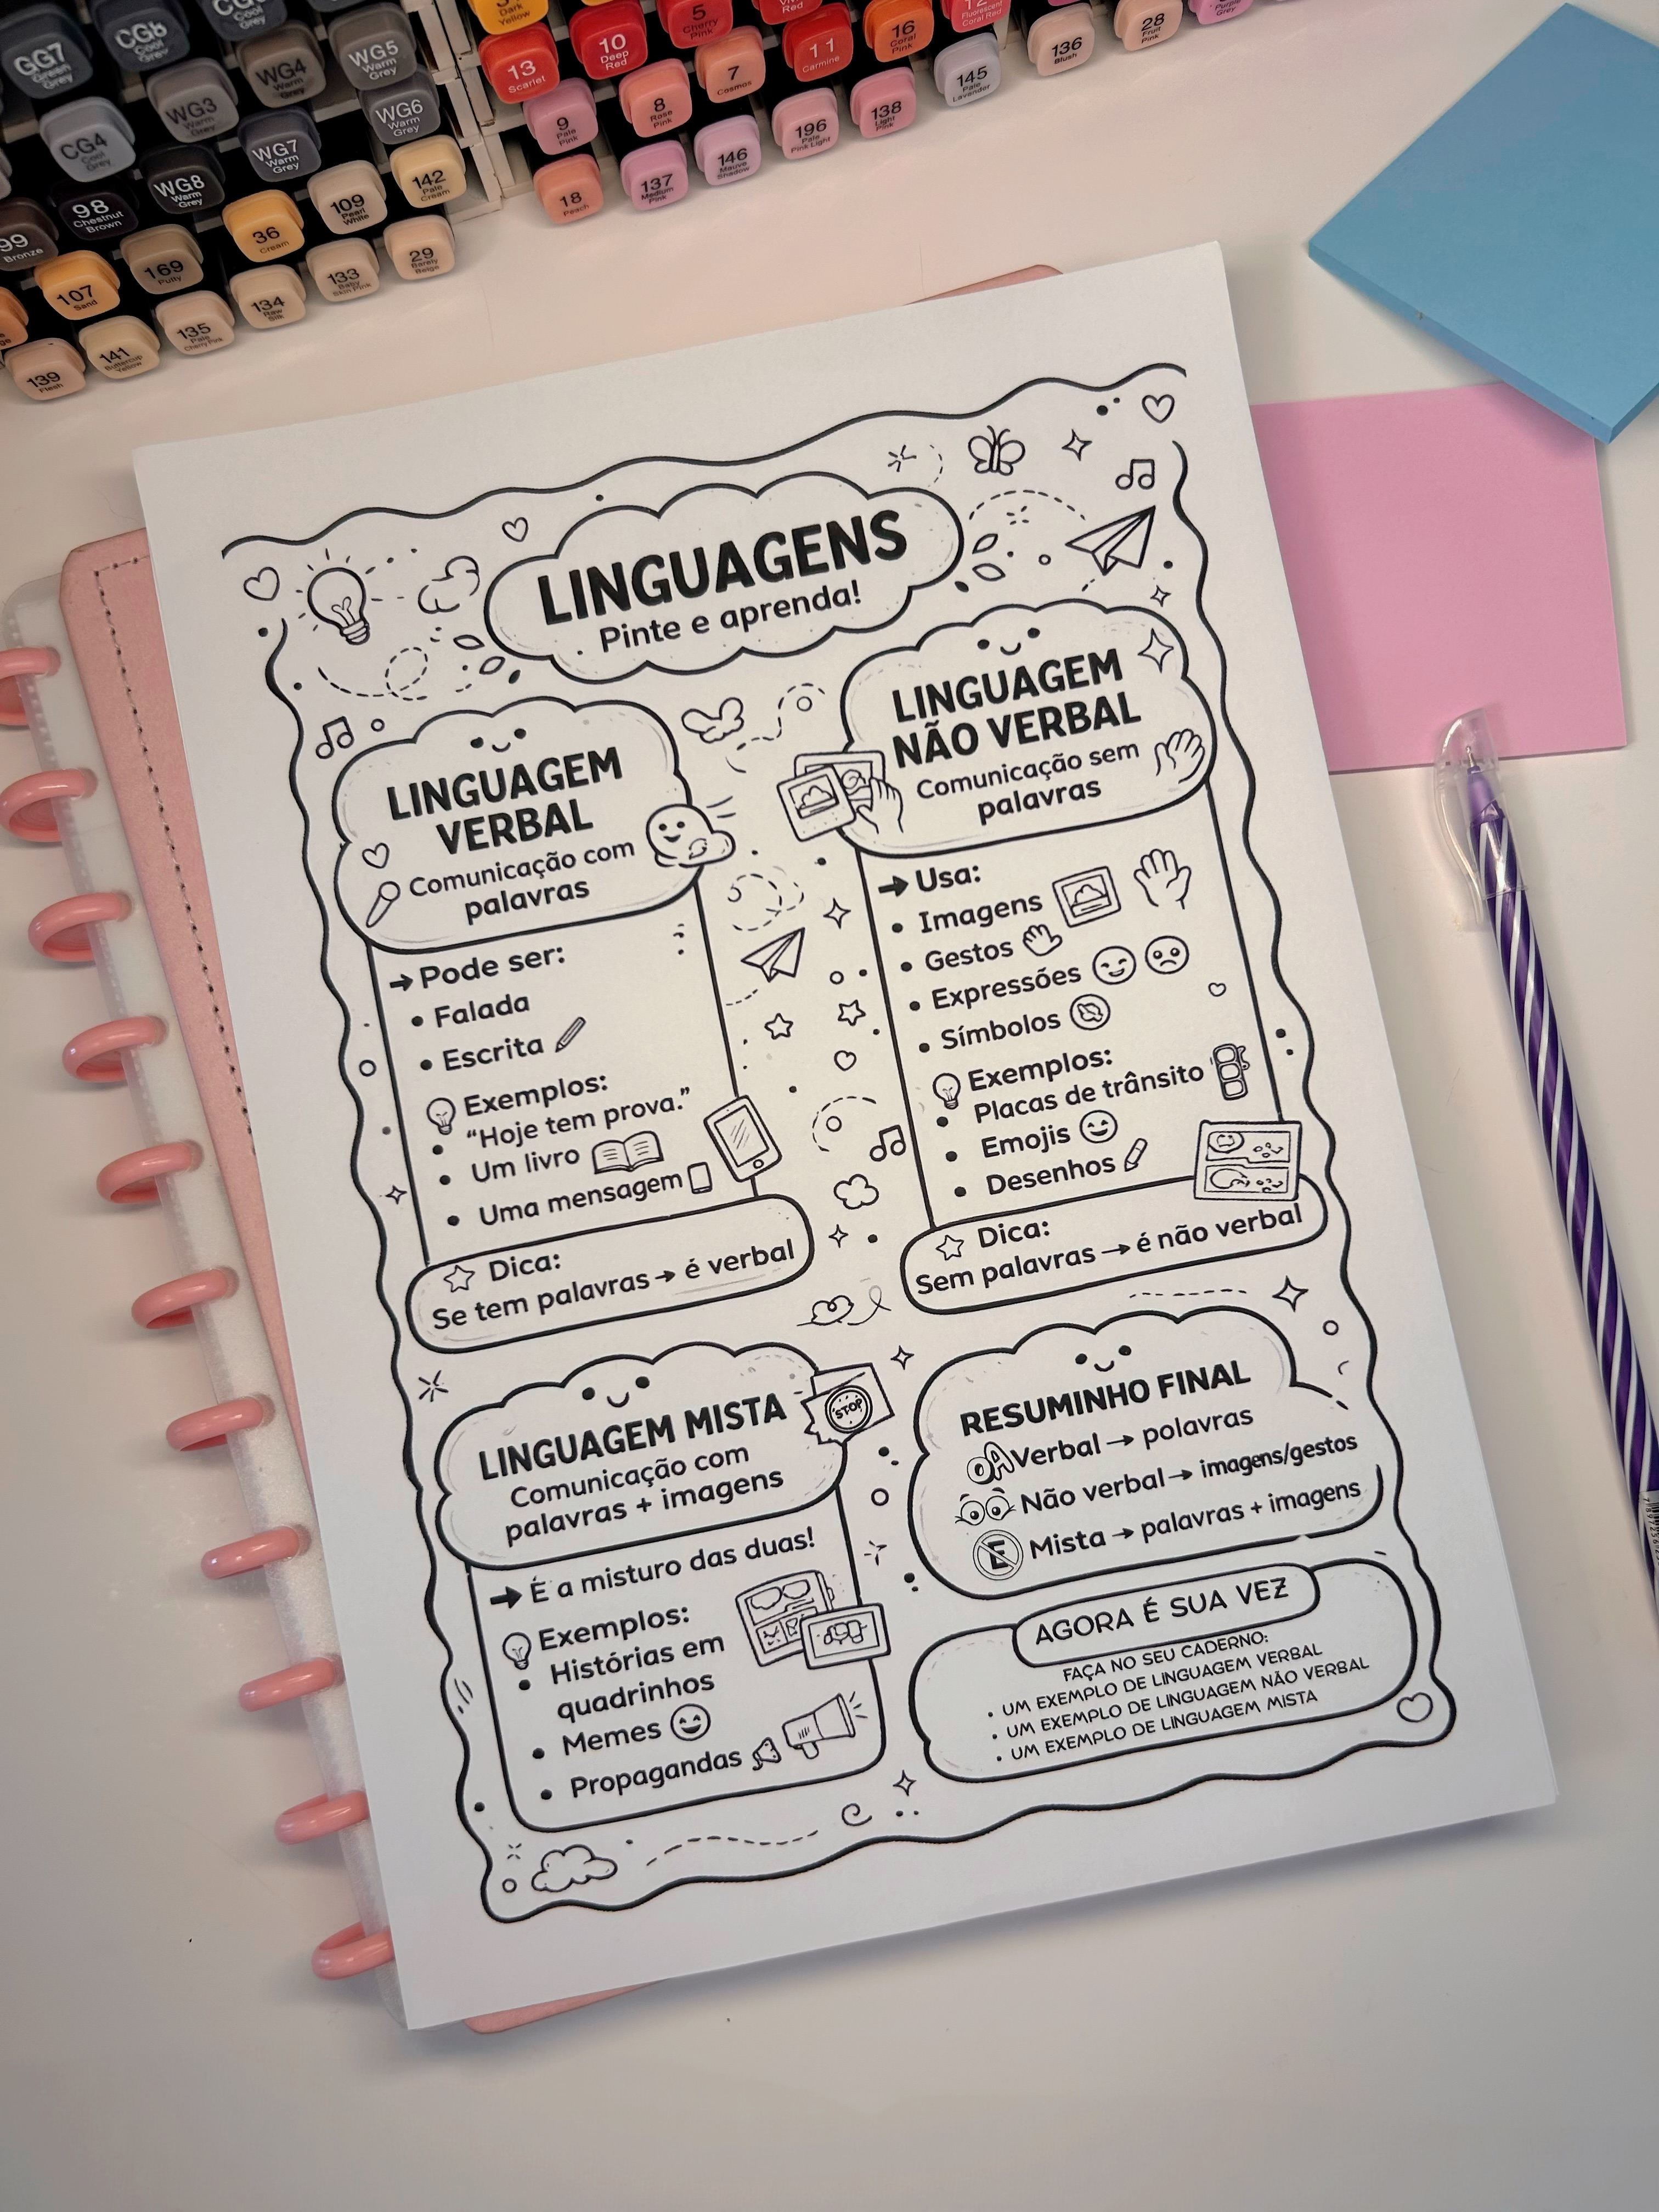 GG7
Green
Grey
CG6
Cool
Grey
WG5
Warm
Grey
WG4
Warm
Grey
WG3
Warm
Grey
WG6
Warm
Grey
CG4
Cool
Grey
WG7
Warm
Grey
WG8
Warm
Grey
98
Chestnut
Brown
99
Bronze
142
Pale
Cream
109
Pearl
White
36
Cream
169
Putty
107
Sand
29
Barely
Beige
133
Baby
Skin Pink
134
Raw
Silk
135
Pale
Cherry Pink
141
Buttercup
Yellow
139
Flesh
Dark
Yellow
5
Cherry
Pink
Red
12
Fluorescent
Coral Red
13
Scarlet
10
Deep
Red
11
Carmine
16
Coral
Pink
136
Blush
28
Fruit
Pink
Purple
Grey
9
Pale
Pink
8
Rose
Pink
7
Cosmos
145
Pale
Lavender
18
Peach
137
Medium
Pink
146
Mauve
Shadow
196
Pale
Pink Light
138
Light
Pink
LINGUAGENS
Pinte e aprenda!
LINGUAGEM
VERBAL
Comunicação com
palavras
Pode ser:
• Falada
• Escrita
Exemplos:
• "Hoje tem prova."
• Um livro
• Uma mensagem
Dica:
Se tem palavras → é verbal
LINGUAGEM
NÃO VERBAL
Comunicação sem
palavras
Usa:
• Imagens
• Gestos
• Expressões
• Símbolos
Exemplos:
• Placas de trânsito
• Emojis
• Desenhos
Dica:
Sem palavras → é não verbal
LINGUAGEM MISTA
STOP
Comunicação com
palavras + imagens
É a misturo das duas!
Exemplos:
• Histórias em
quadrinhos
• Memes
• Propagandas
RESUMINHO FINAL
OA Verbal → polavras
Não verbal → imagens/gestos
E Mista → palavras + imagens
AGORA É SUA VEZ
FAÇA NO SEU CADERNO:
• UM EXEMPLO DE LINGUAGEM VERBAL
• UM EXEMPLO DE LINGUAGEM NÃO VERBAL
• UM EXEMPLO DE LINGUAGEM MISTA